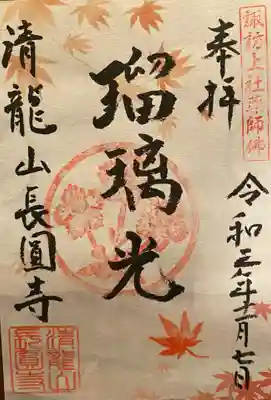 諏訪上社薬師佛
奉拝
令和元年十一月七日
瑠璃光
清龍山長圓寺
清龍山
長圓寺